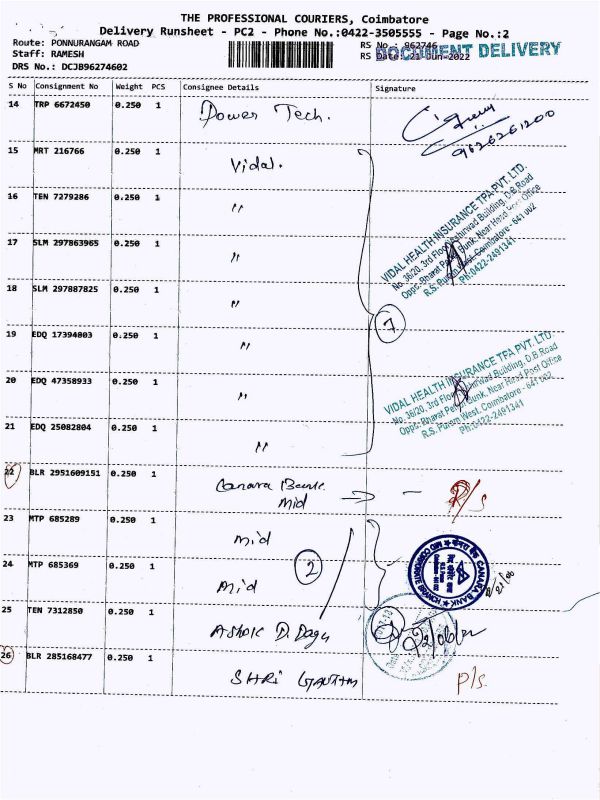 THE PROFESSIONAL COURIERS, Coimbatore
Delivery Runsheet - PC2 - Phone No.:0422-3505555 - Page No.:2
Route: PONNURANGAM ROAD
RS No.: 962746
Staff: RAMESH
RS Date: 21-Jun-2022
DOCUMENT DELIVERY
DRS No.: DCJB96274602
S No Consignment No Weight PCS Consignee Details Signature
14 TRP 6672450 0.250 1 Power Tech.
9626261200
15 MRT 216766 0.250 1 Vidal.
16 TEN 7279286 0.250 1 "
17 SLM 297863965 0.250 1 "
VIDAL HEALTH INSURANCE TPA PVT. LTD.
No. 36/20, 3rd Floor, Building, D.B.Road
Opps. Bharat Petrol Bunk, Near Head Post Office
R.S. Puram West, Coimbatore - 641 002
Ph:0422-2491341
18 SLM 297887825 0.250 1 "
7
19 EDQ 17394803 0.250 1 "
20 EDQ 47358933 0.250 1 "
VIDAL HEALTH INSURANCE TPA PVT. LTD.
No. 36/20, 3rd Floor, Building, D.B.Road
Opps. Bharat Petrol Bunk, Near Head Post Office
R.S. Puram West, Coimbatore - 641 002
Ph:0422-2491341
21 EDQ 25082804 0.250 1 "
22 BLR 2951609151 0.250 1 Canara Bank
Mid
R/s
23 MTP 685289 0.250 1 Mid
CANARA BANK
MID CORPORATE BRANCH
2
24 MTP 685369 0.250 1 Mid
21/06
25 TEN 7312850 0.250 1 Ashok D. Daga
26 BLR 285168477 0.250 1 SHRI GAUTHM
P/s.